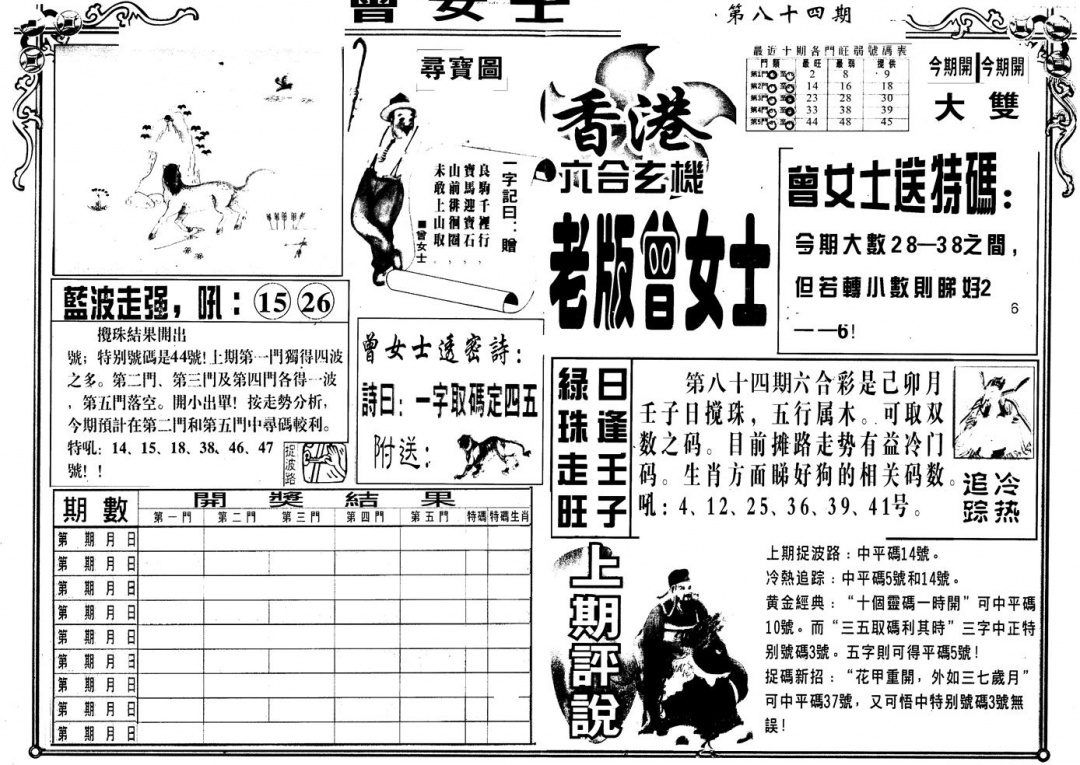 曾女士
第八十四期
尋寶圖
一字記曰：贈
良駒千裡行，
寶馬迎寶石，
山前徘徊圈，
未敢上山取。
■曾女士
香港
六合玄機
老版曾女士
最近十期各門旺弱號碼表
門類 最旺 最弱 提供
第1門 至 2 8 9
第2門 至 14 16 18
第3門 至 23 28 30
第4門 至 33 38 39
第5門 至 44 48 45
今期開 今期開
大 雙
曾女士送特碼：
今期大數28—38之間，
但若轉小數則睇好2
——6!
6
藍波走强，吼：15 26
攪珠結果開出
號；特别號碼是44號!上期第一門獨得四波
之多。第二門、第三門及第四門各得一波
，第五門落空。開小出單！按走勢分析，
今期預計在第二門和第五門中尋碼較利。
特吼：14、15、18、38、46、47
號！！
捉波路
曾女士透密詩：
詩曰：一字取碼定四五
附送：
綠珠走旺
日逢壬子
第八十四期六合彩是己卯月
壬子日搅珠，五行属木。可取双
数之码。目前摊路走势有益冷门
码。生肖方面睇好狗的相关码数。
吼：4、12、25、36、39、41号。
冷热
追踪
期數 開獎結果
第一門 第二門 第三門 第四門 第五門 特碼 特碼生肖
第 期 月 日
第 期 月 日
第 期 月 日
第 期 月 日
第 期 月 日
第 期 月 日
第 期 月 日
第 期 月 日
第 期 月 日
上期評說
上期捉波路：中平碼14號。
冷熱追踪：中平碼5號和14號。
黄金經典：“十個靈碼一時開”可中平碼
10號。而“三五取碼利其時”三字中正特
别號碼3號。五字則可得平碼5號!
捉碼新招：“花甲重開，外如三七歲月”
可中平碼37號，又可悟中特别號碼3號無
誤!